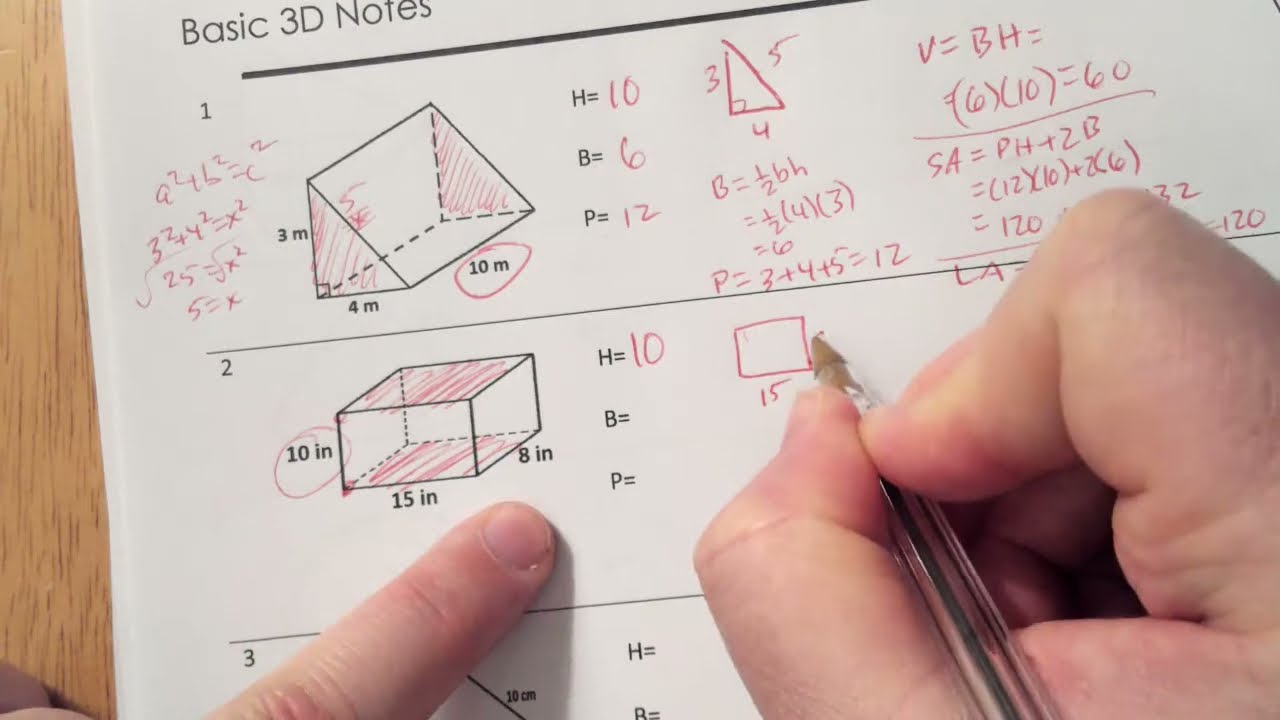 Basic 3D Notes
1
a²+b²=c²
3²+4²=x²
√25=√x²
5=x
3 m
5
4 m
10 m
H= 10
B= 6
P= 12
3
5
4
B=½bh
=½(4)(3)
=6
P=3+4+5=12
V=BH=
(6)(10)=60
SA=PH+2B
=(12)(10)+2(6)
=120
32
LA=
=120
2
10 in
15 in
8 in
H= 10
B=
P=
15
3
10 cm
H=
B=